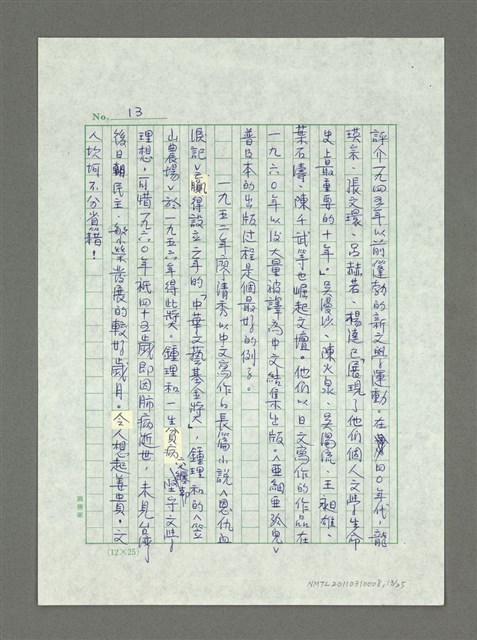 No. 13
評介一九四五年以前蓬勃的新文學運動。在四〇年代，龍
瑛宗、張文環、呂赫若、楊逵已「展現了他們個人文學生命
史上最重要的十年」。吳漫沙、陳火泉、吳濁流、王昶雄、
葉石濤、陳千武等也崛起文壇。他們以日文寫作的作品在
一九六〇年以後大量被譯為中文結集出版。〈亞細亞孤兒〉
普及本的出版過程是個最好的例子。
一九五二年廖清秀以中文寫作的長篇小說〈恩仇血
淚記〉贏得設立二年的「中華文藝基金獎」，鍾理和的〈笠
山農場〉於一九五六年得此獎。鍾理和一生貧病交纏却堅守文學
理想，可惜一九六〇年祇四十五歲即因肺病逝世，未見台灣
後日朝民主、繁榮發展的較好歲月。令人想起姜貴。文
人坎坷不分省籍！
(12×25)
NMTL20110310008,13/25